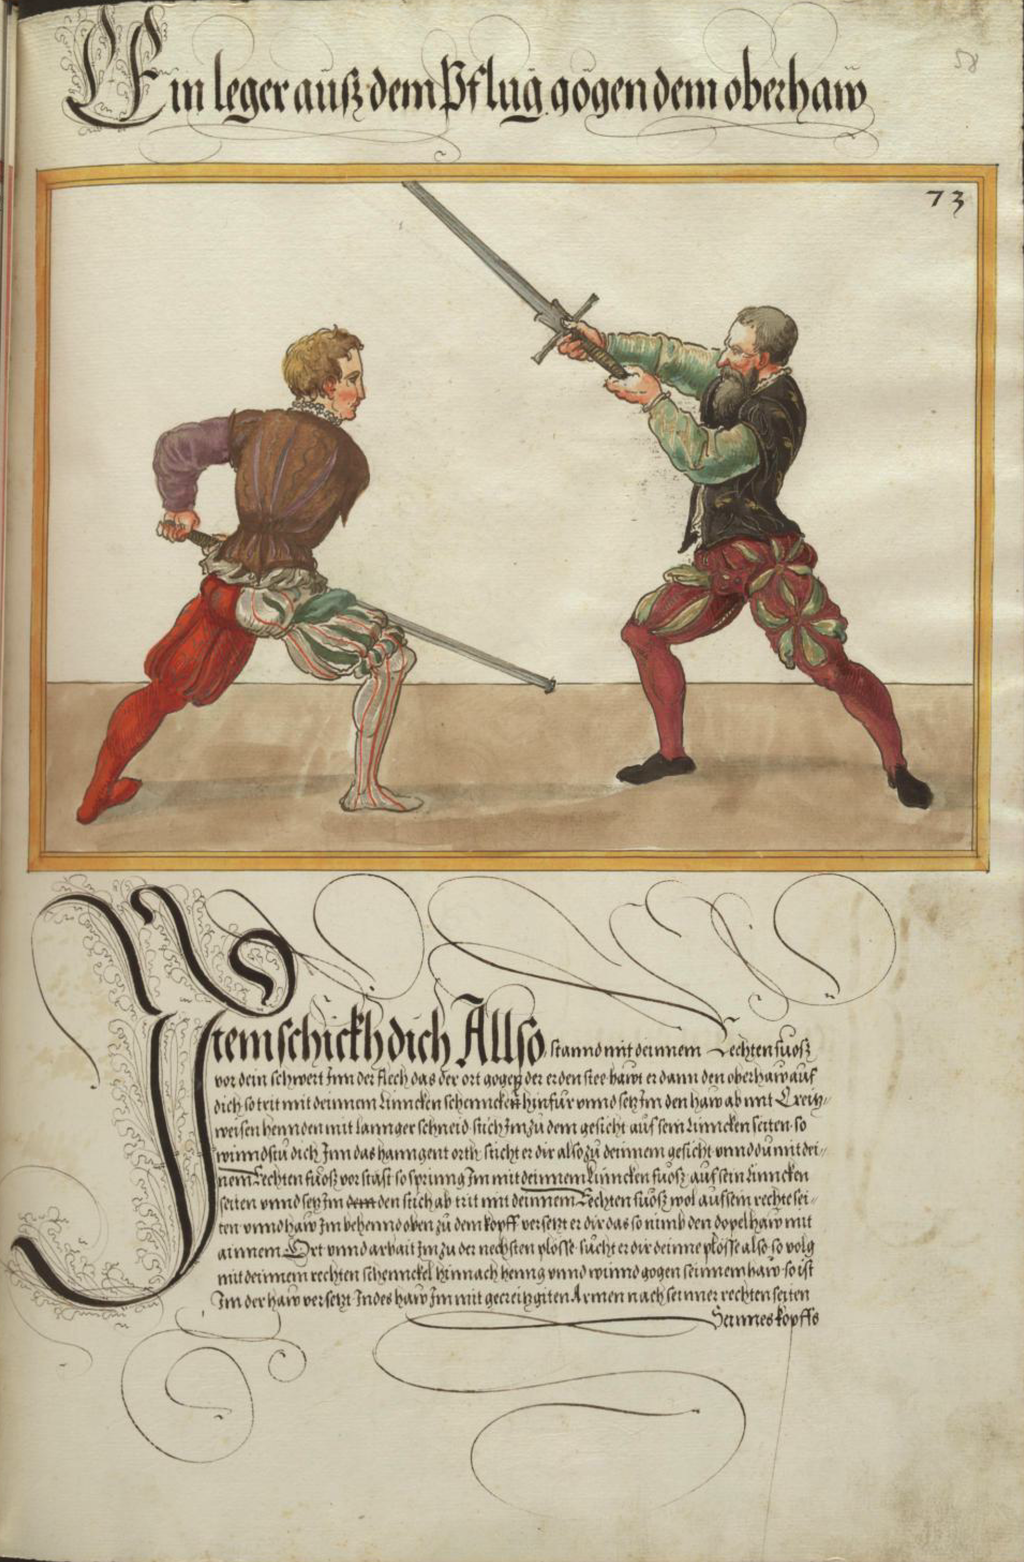 Ein leger auß dem Pflug gögen dem oberhaw
58
73
Item schickh dich Allso stannd mit deinnem Rechten fuosz
vor dein schwert Inn der flech das der ort gögen der erden stee hawt er dann den oberhaw auf
dich so trit mit deinnem Linncken schennckel hinfür vnnd setz Im den haw ab mit Creitz
weisen hennden mit lannger schneid stich Im zu dem gesicht auf sein Linncken seiten so
winndstu dich Inn das hanngent orth sticht er dir also zu deinnem gesicht vnnd du mit dei-
nem Rechten fuosz vor stast so spring Im mit deinnem Linncken fuosz auf sein Linncken
seiten vnnd setz Im dem den stich ab trit mit deinnem Rechten fuosz wol auf sein rechte sei-
ten vnnd haw Im behennd oben zu dem kopff versetzt er dir das so nimb den dopelhaw mit
ainnem Ort vnnd arbait Im zu der nechsten plösse sücht er dir deinne plösse also so volg
mit deinnem rechten schennckel hinnach henng vnnd winnd gögen seinnem haw so ist
Im der haw versetzt Indes haw Im mit gecreitzgiten Armen nach seinner rechten seiten
Seinnes kopffs